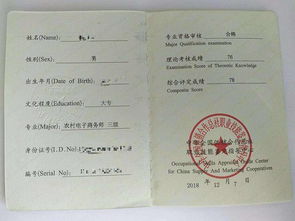 姓名(Name):
性别(Sex): 男
出生年月(Date of Birth):
文化程度(Education): 大专
专业(Major): 农村电子商务师 三级
身份证号(I.D.No)
编号(Serial No)
专业资格审核 合格
Major Qualification examination
理论考核成绩 76
Examination Score of Theoretic Knowledge
综合评定成绩 78
Composite Score
Occupational Skills Appraisal Center
for China Supply And Marketing Cooperatives
2018 年 12 月 7 日